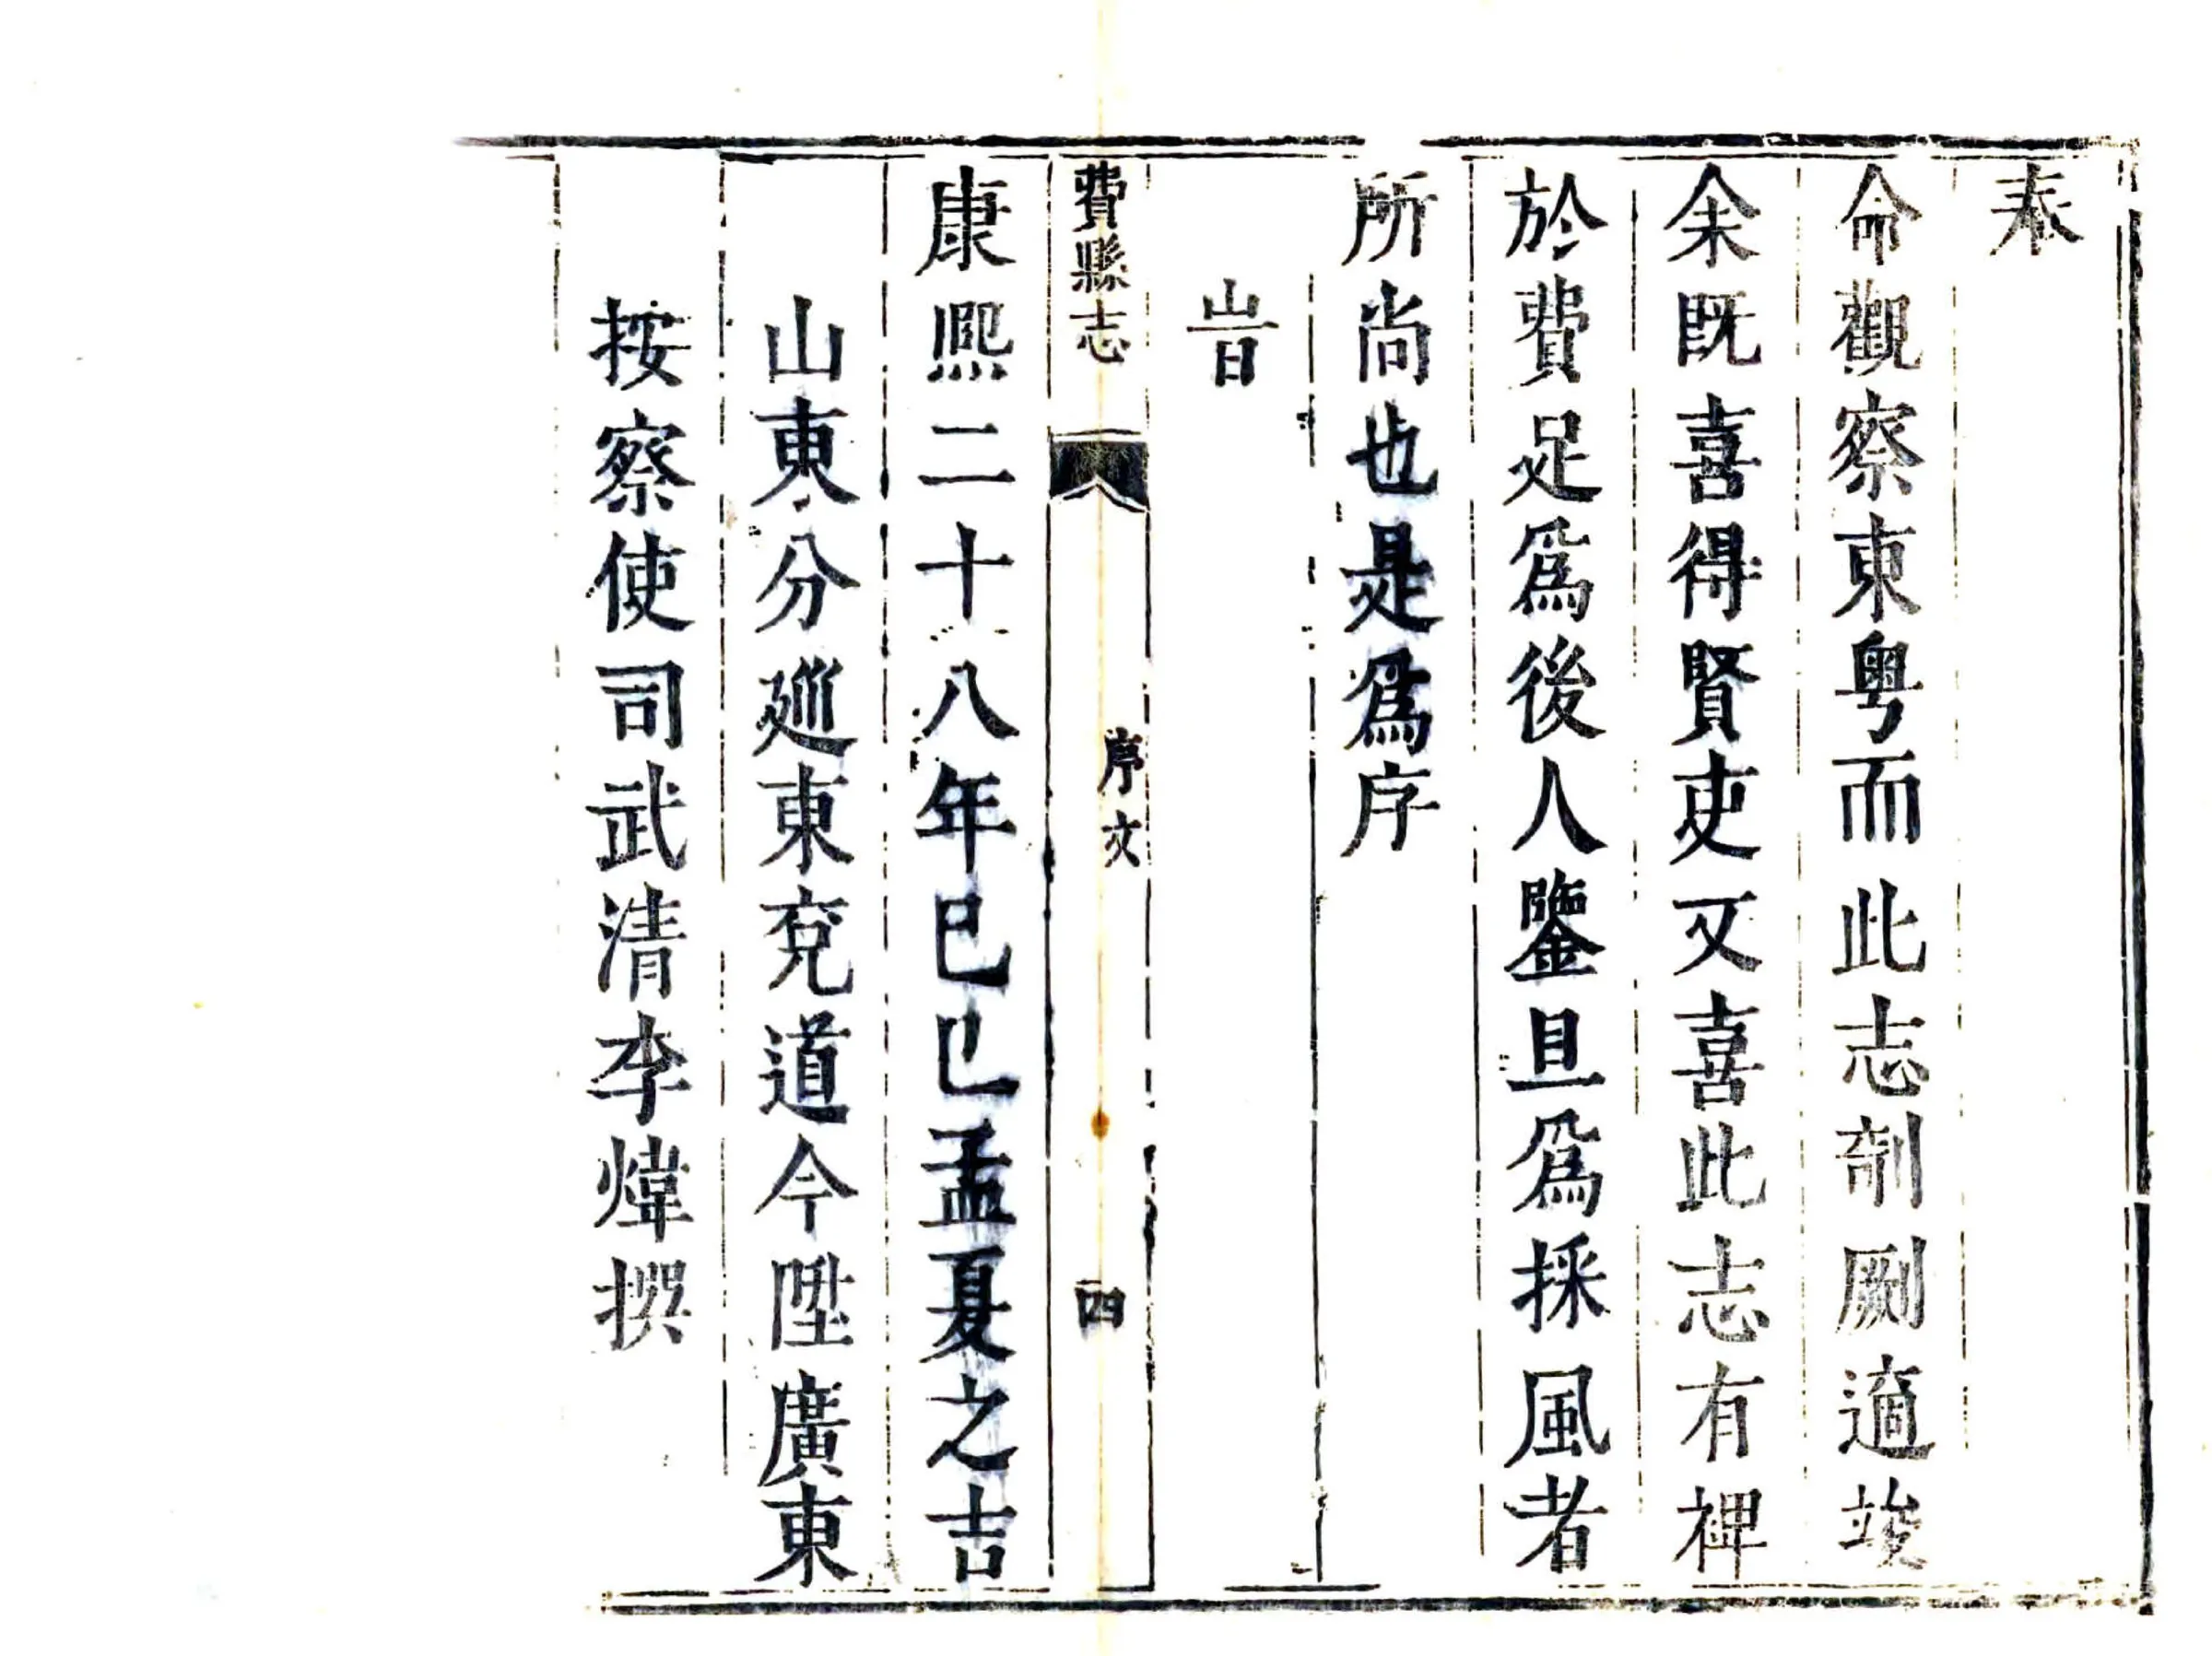 奉
命觀察東粤而此志剞劂適竣
余既喜得賢吏又喜此志有裨
於費足爲後人鑒且爲採風者
所尚也是爲序
旹
費縣志
序文
四
康熙二十八年已巳孟夏之吉
山東分廵東兖道今陞廣東
按察使司武清李煒撰